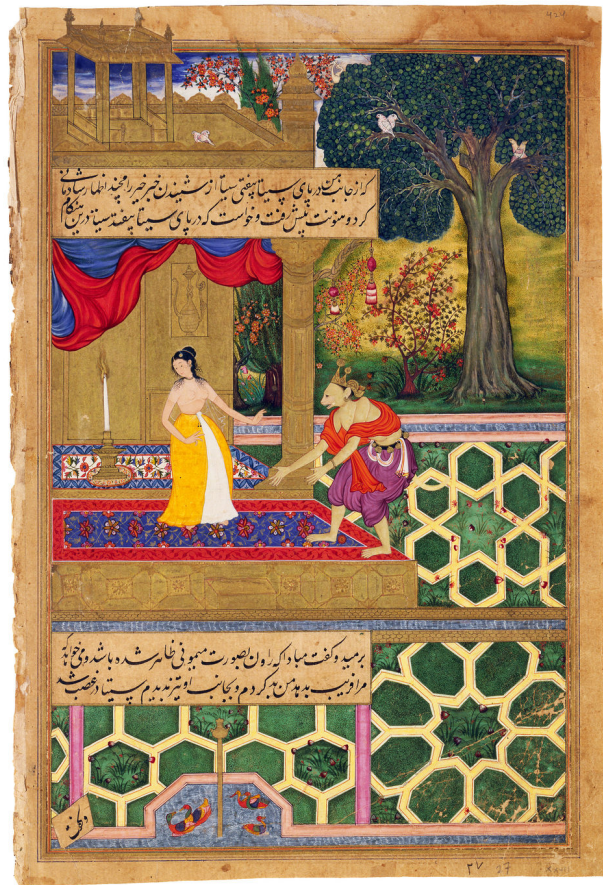 که از جانب من در پای سیتا بیفتی سیتا از شنیدن خبر خیر رامچند اظهار شادمانی
کرد و هنونت پیش رفت و خواست که در پای سیتا بیفتد سیتا درین هنگام
برمید و گفت مبادا که راون بصورت میمونی ظاهر شده باشد و می خواهد که
مرا فریب بدهد من بر کردم و بجانب او نیز ندیدم سیتا در غضب شد
و گفت
۲۷ 27